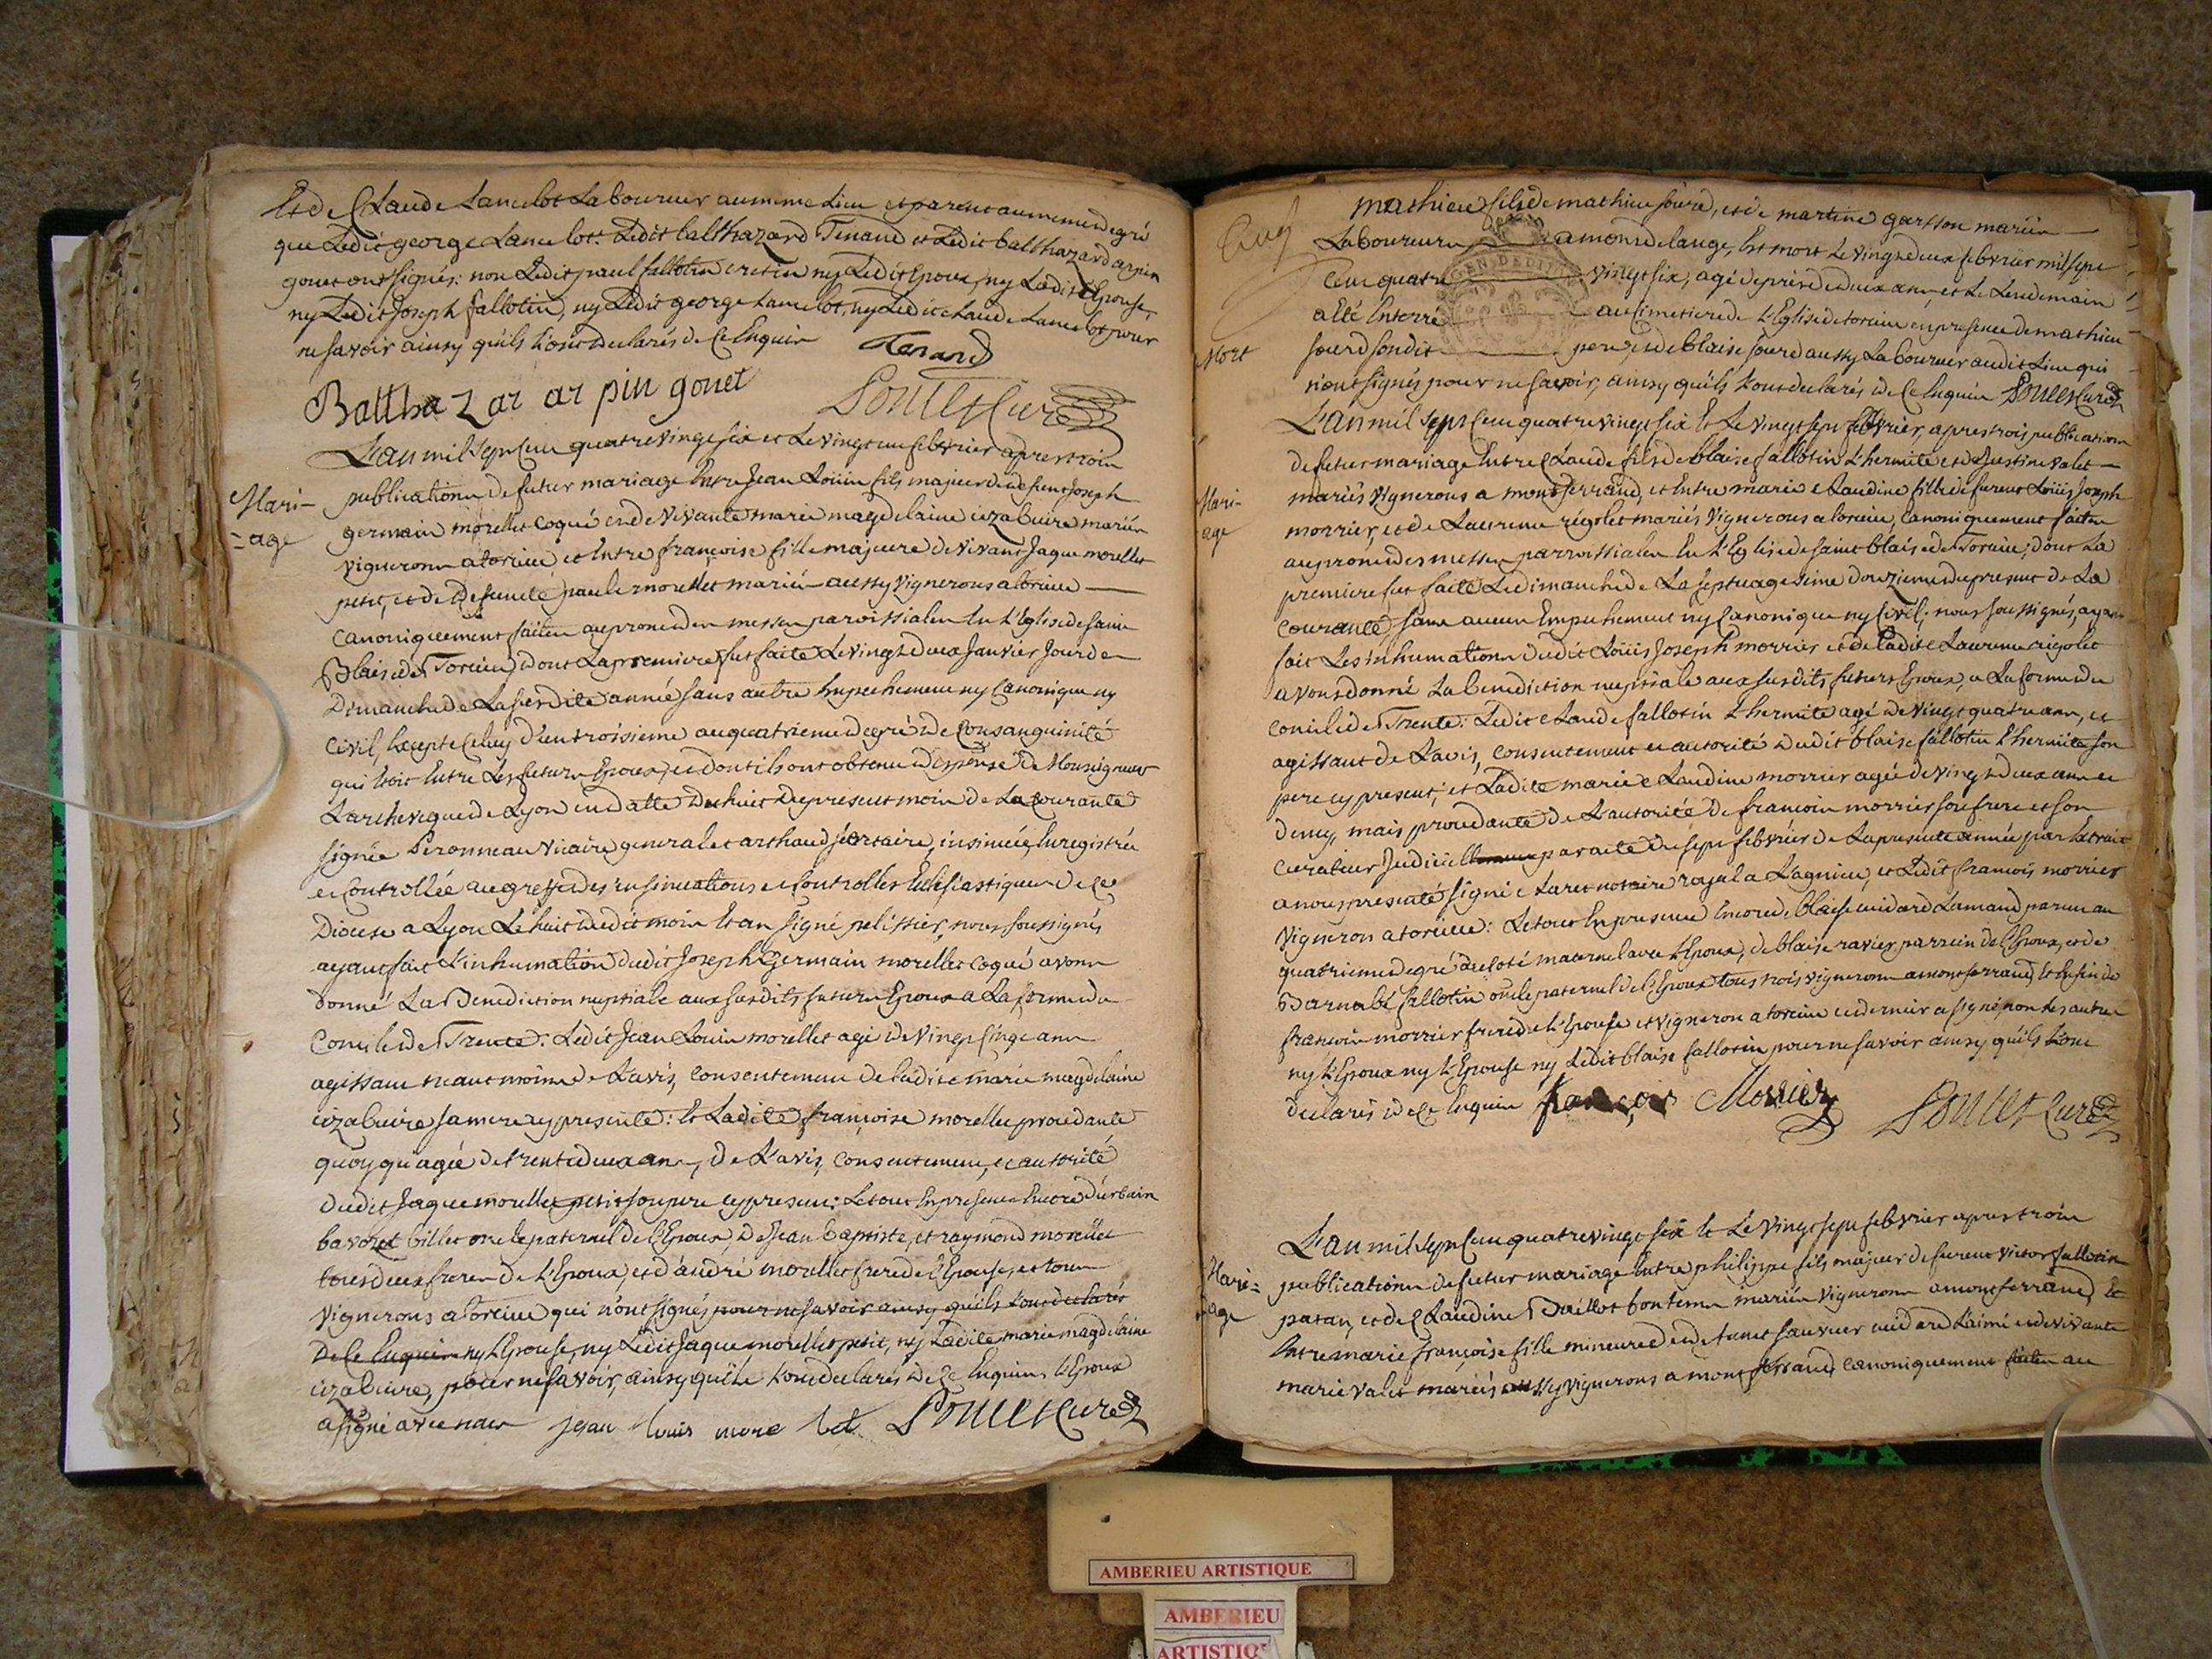 Et de Claude Lancelot Laboureur au meme Lieu et parent au meme degré
que Ledit george Lancelot: Ledit balthazard Tenand et Ledit balthazard arpin
gouet ont signés: non Ledit paul fallotin cretin ny Ledit Epoux, ny Ladite Epouse,
ny Ledit Joseph fallotin, ny Ledit george Lancelot, ny Ledit claude Lancelot pour
ne savoir ainsy qu'ils L'ont declarés de Ce Enquis Tenand
Baltha zar ar pin gouet
L'an mil sept Cent quatre vingt six et Le vingt un febvrier apres trois
Mari-
=age
publications de futur mariage Entre Jean Loüis fils majeur de defunt Joseph
germain morellet coqué et de vivante marie magdelaine mariés
vignerons a torcieu et Entre françoise fille majeure de vivant Jaque morellet
petit, et de defunte morellet mariés aussy vignerons a torcieu
canoniquement faites au prone des messes paroissiales En L'Eglise de saint
Blaise de Torcieu, dont La premiere fut faite Le vingt deux Janvier Jour de
Dimanche de La susdite année sans autre Empechement ny Canonique ny
Civil, Excepté Celuy d'un troisieme au quatrieme degré de Consanguinité
qui Etoit Entre Les futurs Epoux, et dont ils ont obtenu dispense de Monseigneur
L'archeveque de Lyon en datte du huit du present mois de La courante
signée Peronneau vicaire general et arthaud secretaire, insinuée, Enregistrée
et Controllée au greffe des insinuations et Controlles Eclesiastiques de Ce
Diocese a Lyon Le huit dudit mois Et an signé pelissier, nous soussignés
ayant fait L'inhumation dudit Joseph Germain morellet coqué avons
donné La Benediction nuptiale aux susdits futurs Epoux a La forme du
Concile de Trente: Ledit Jean Louis morellet agé de vingt Cinq ans
agissant neant moins de L'avis, consentement de Ladite marie magdelaine
sa mere cy presente: Et Ladite françoise morellet procedante
quoy qu'agée de trente deux ans, de L'avis, consentement, et autorité
dudit Jaque morellet petit son pere cy present: Le tout En presence Encore d'urbain
bavoret billet oncle paternel de L'Epoux, de Jean baptiste, et raymond morellet
tous deux freres de L'Epoux, et d'andré morellet frere de L'Epouse, et tous
vignerons a Torcieu qui n'ont signés pour ne savoir ainsy qu'ils L'ont declarés
de Ce Enquis ny L'Epouse, ny Ledit Jaque morellet petit, ny Ladite marie magdelaine
pour ne savoir, ainsy qu'ils L'ont declarés de Ce Enquis, L'Epoux
a signé avec nous jean louis more let
mathieu fils de mathieu sourd, et de martine garsson mariés
Laboureurs a mont de lange, Est mort Le vingt deux febvrier mil sept
Cent quatre vingt six, agé de près de deux ans, et Le Lendemain
a été Enterré au Cimetiere de L'Eglise de torcieu en presence de mathieu
Mort
sourd son dit pere et de blaise sourd aussy Laboureur audit Lieu qui
n'ont signés pour ne savoir, ainsy qu'ils L'ont declarés de Ce Enquis
L'an mil sept Cent quatre vingt six Et Le vingt sept febvrier, apres trois publications
de futur mariage Entre Claude fils de blaise fallotin L'hermite et de Justine valet
Mari-
age
mariés vignerons a montferrand, et Entre marie Claudine fille de furent Loüis Joseph
morrier, et de Laurence rigolet mariés vignerons a torcieu, Canoniquement faites
au prone des messes parroissiales En L'Eglise de saint blaise de Torcieu; dont La
premiere fut faite Le dimanche de La septuagesime douzieme du present de La
courante, sans aucun Empechement ny Canonique ny Civil; nous soussignés, ayant
fait Les inhumations dudit Loüis Joseph morrier et de Ladite Laurence rigolet
avons donné La benediction nuptiale aux susdits futurs Epoux, a La forme du
concile de Trente: Ledit Claude fallotin L'hermite agé de vingt quatre ans, et
agissant de L'avis, consentement et autorité dudit blaise fallotin L'hermite son
pere cy present; et Ladite marie Claudine morrier agée de vingt deux ans et
demy, mais procedante de L'autorité de francois morrier son frere et son
Curateur Judiciel par acte du sept febvrier de La presente année par Extrait
a nous presenté signé Claret notaire royal a Lagnieu, et Ledit francois morrier
vigneron a torcieu: Le tout En presence Encore de blaise cuidard Lamand parent au
quatrieme degré du coté maternel avec L'Epoux, de blaise ravier parrein de L'Epoux, et de
Barnabé fallotin oncle paternel de L'Epoux tous trois vignerons a montferrand, Et Enfin de
francois morrier frere de L'Epouse et vigneron a torcieu ce dernier a signé non Les autres
ny L'Epoux ny L'Epouse ny Ledit blaise fallotin pour ne savoir ainsy qu'ils L'ont
declarés de Ce Enquis françois Morier
L'an mil sept Cent quatre vingt six Et Le vingt sept febvrier apres trois
Mari=
age
publications de futur mariage Entre philippe fils majeur de furent victor fallotin
patan, et de Claudine Baillot bontems mariés vignerons a montferrand, Et
Entre marie françoise fille mineure de defunt sauveur cuidard L'aimé et de vivante
marie valet mariés aussy vignerons a montferrand, canoniquement faites au
AMBERIEU ARTISTIQUE
AMBERIEU
ARTISTIQ